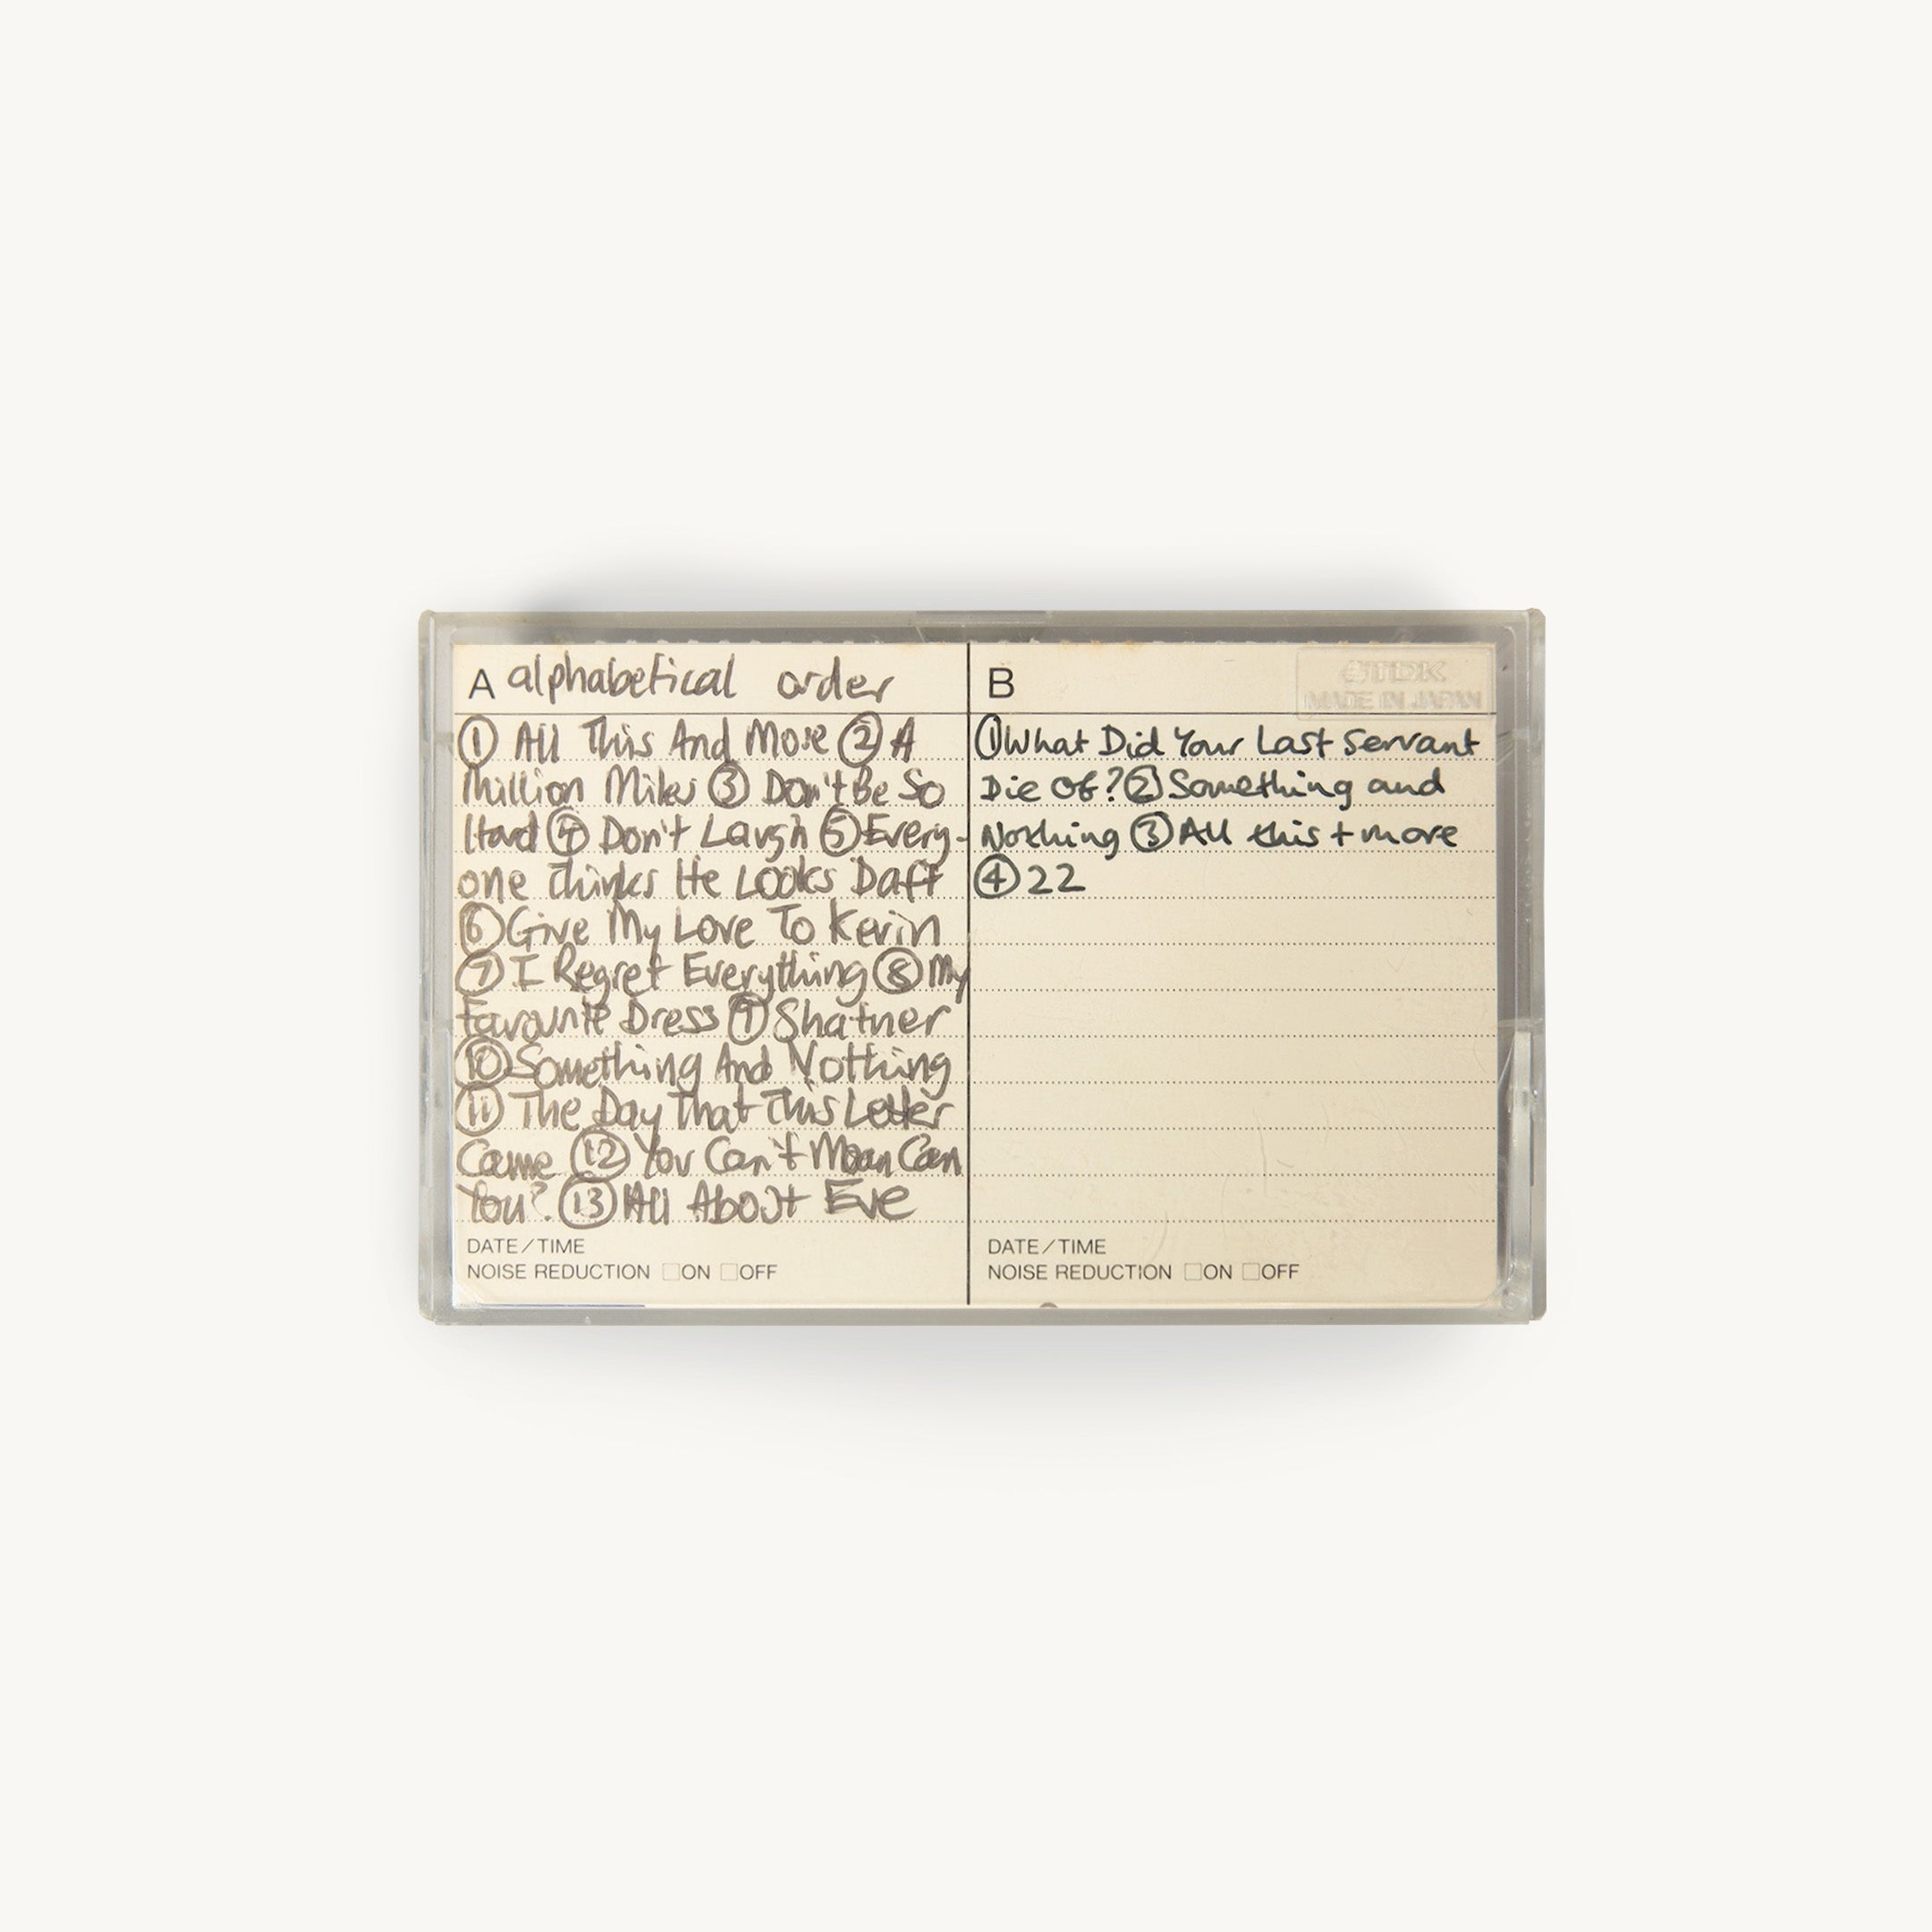 A alphabetical order
① All This And More ② A
Million Miles ③ Don't Be So
Hard ④ Don't Laugh ⑤ Every-
one Thinks He Looks Daft
⑥ Give My Love To Kevin
⑦ I Regret Everything ⑧ My
Favourite Dress ⑨ Shatner
⑩ Something And Nothing
⑪ The Day That This Letter
Came ⑫ You Can't Moan Can
You? ⑬ All About Eve
DATE/TIME
NOISE REDUCTION □ON □OFF
B
TDK
MADE IN JAPAN
① What Did Your Last Servant
Die Of? ② Something and
Nothing ③ All this + more
④ 22
DATE/TIME
NOISE REDUCTION □ON □OFF